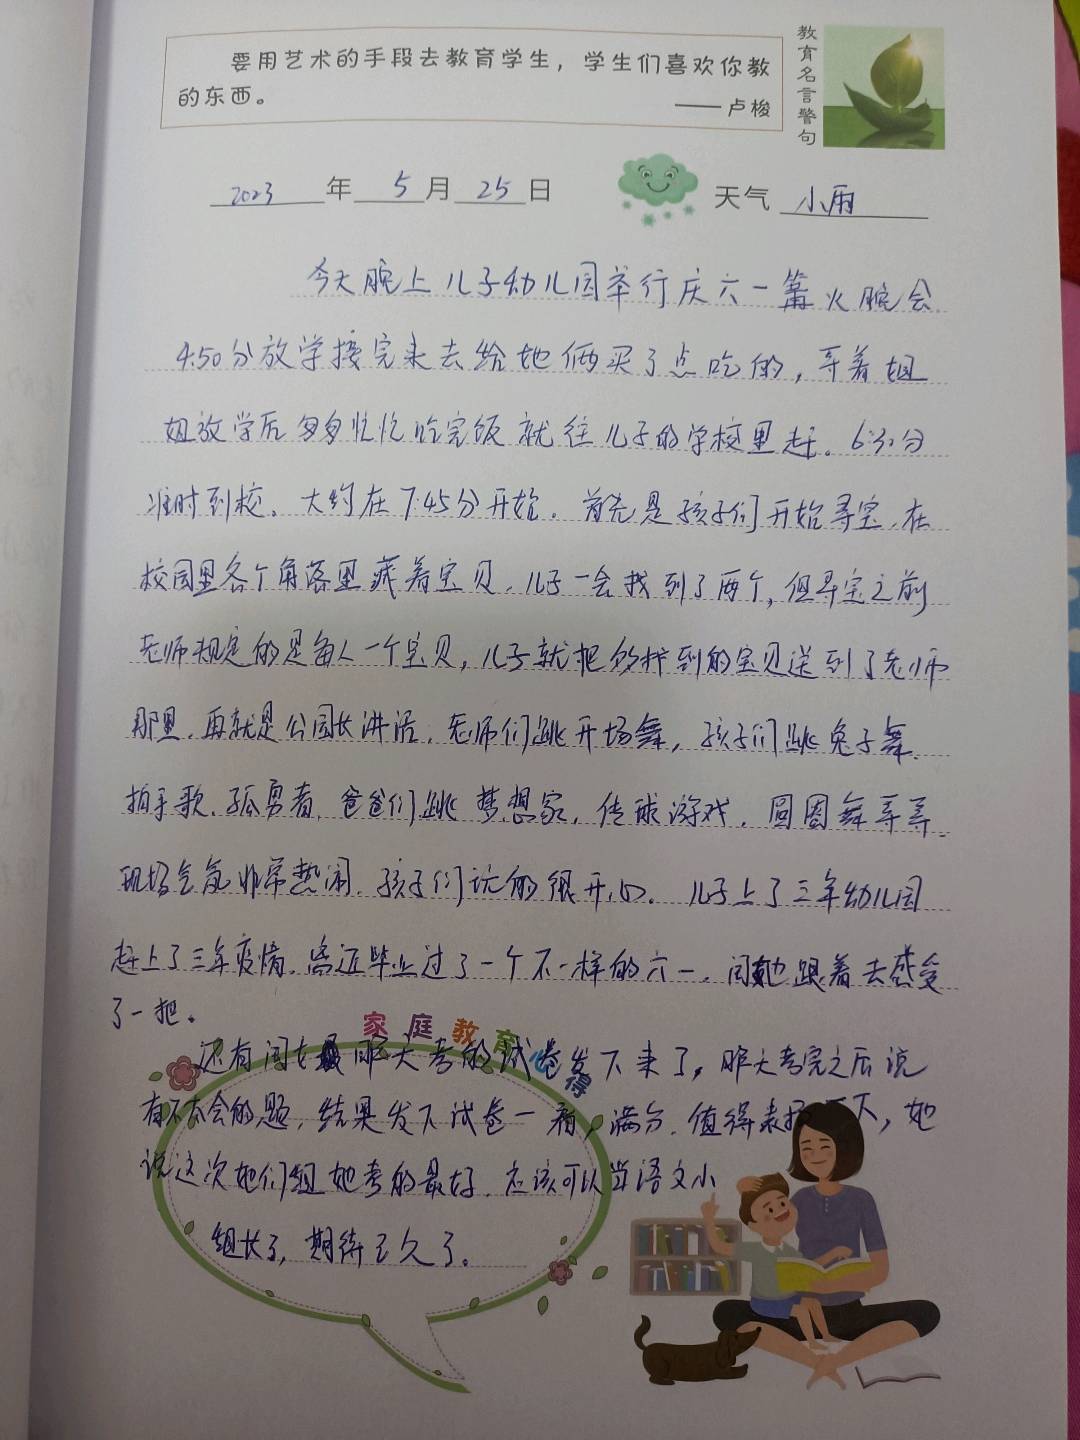 要用艺术的手段去教育学生，学生们喜欢你教
的东西。
——卢梭
教育名言警句
2023年5月25日 天气 小雨
今天晚上儿子幼儿园举行庆六一篝火晚会
4:50分放学接完来去给她俩买了点吃的，等着姐
姐放学后匆匆忙忙吃完饭就往儿子的学校里赶。6:30分
准时到校。大约在7:45分开始。首先是孩子们开始寻宝，在
校园里各个角落里藏着宝贝，儿子一会找到了两个，但寻宝之前
老师规定的是每人一个宝贝，儿子就把多找到的宝贝送到了老师
那里，再就是公园长讲话，老师们跳开场舞，孩子们跳兔子舞、
拍手歌、孤勇者，爸爸们跳梦想家，传球游戏，圆圈舞等等，
现场气氛非常热闹，孩子们玩的很开心。儿子上了三年幼儿园
赶上了三年疫情，离近毕业过了一个不一样的六一，闺她跟着去感受
了一把。
家庭教育心得
还有闺女昨天考的试卷发下来了，昨天考完之后说
有不太会的题，结果发下试卷一看，满分，值得表扬下，她
说这次她们组她考的最好，应该可以当语文小
组长了，期待已久了。